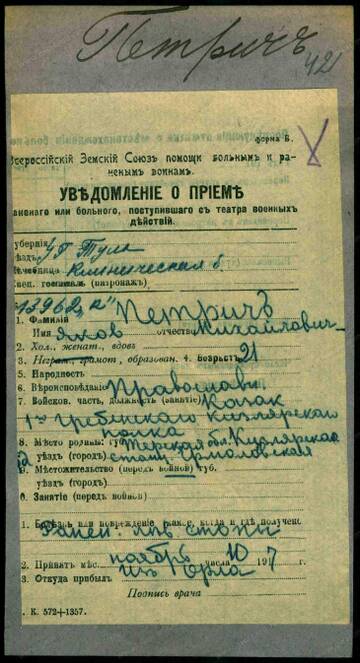 Петричъ
421
форма Б.
Всероссійскій Земскій Союзъ помощи больнымъ и ра-
ненымъ воинамъ.
УВѢДОМЛЕНІЕ О ПРІЕМѢ
раненаго или больного, поступившаго съ театра военныхъ
дѣйствій.
Губернія
уѣздъ г. Тула
Лечебница Клиническая б.
Спец. госпиталь (патронажъ)
13962 "к"
1. Фамилія Петричъ
Имя Яковъ отчество Михайловичъ
2. Хол., женат., вдовъ
3. Неграм., грамот., образован. 4. Возрастъ 21
5. Народность
6. Вѣроисповѣданіе Православн.
7. Войсков. часть, должность (занятіе) Казакъ
1го Гребенскаго Кизлярскаго
полка
8. Мѣсто родины: губ. Терская обл. Кизлярская
уѣздъ (городъ) стан. Ермоловская
9. Мѣстожительство (передъ войной) губ.
уѣздъ (городъ)
0. Занятіе (передъ войной)
1. Болѣзнь или поврежденіе (какое, когда и гдѣ получено
Ранен. лѣв стопы
2. Принятъ мѣс. ноябрь числа 10 1917 г.
3. Откуда прибылъ изъ Орла
Подпись врача
К. 572+1357.